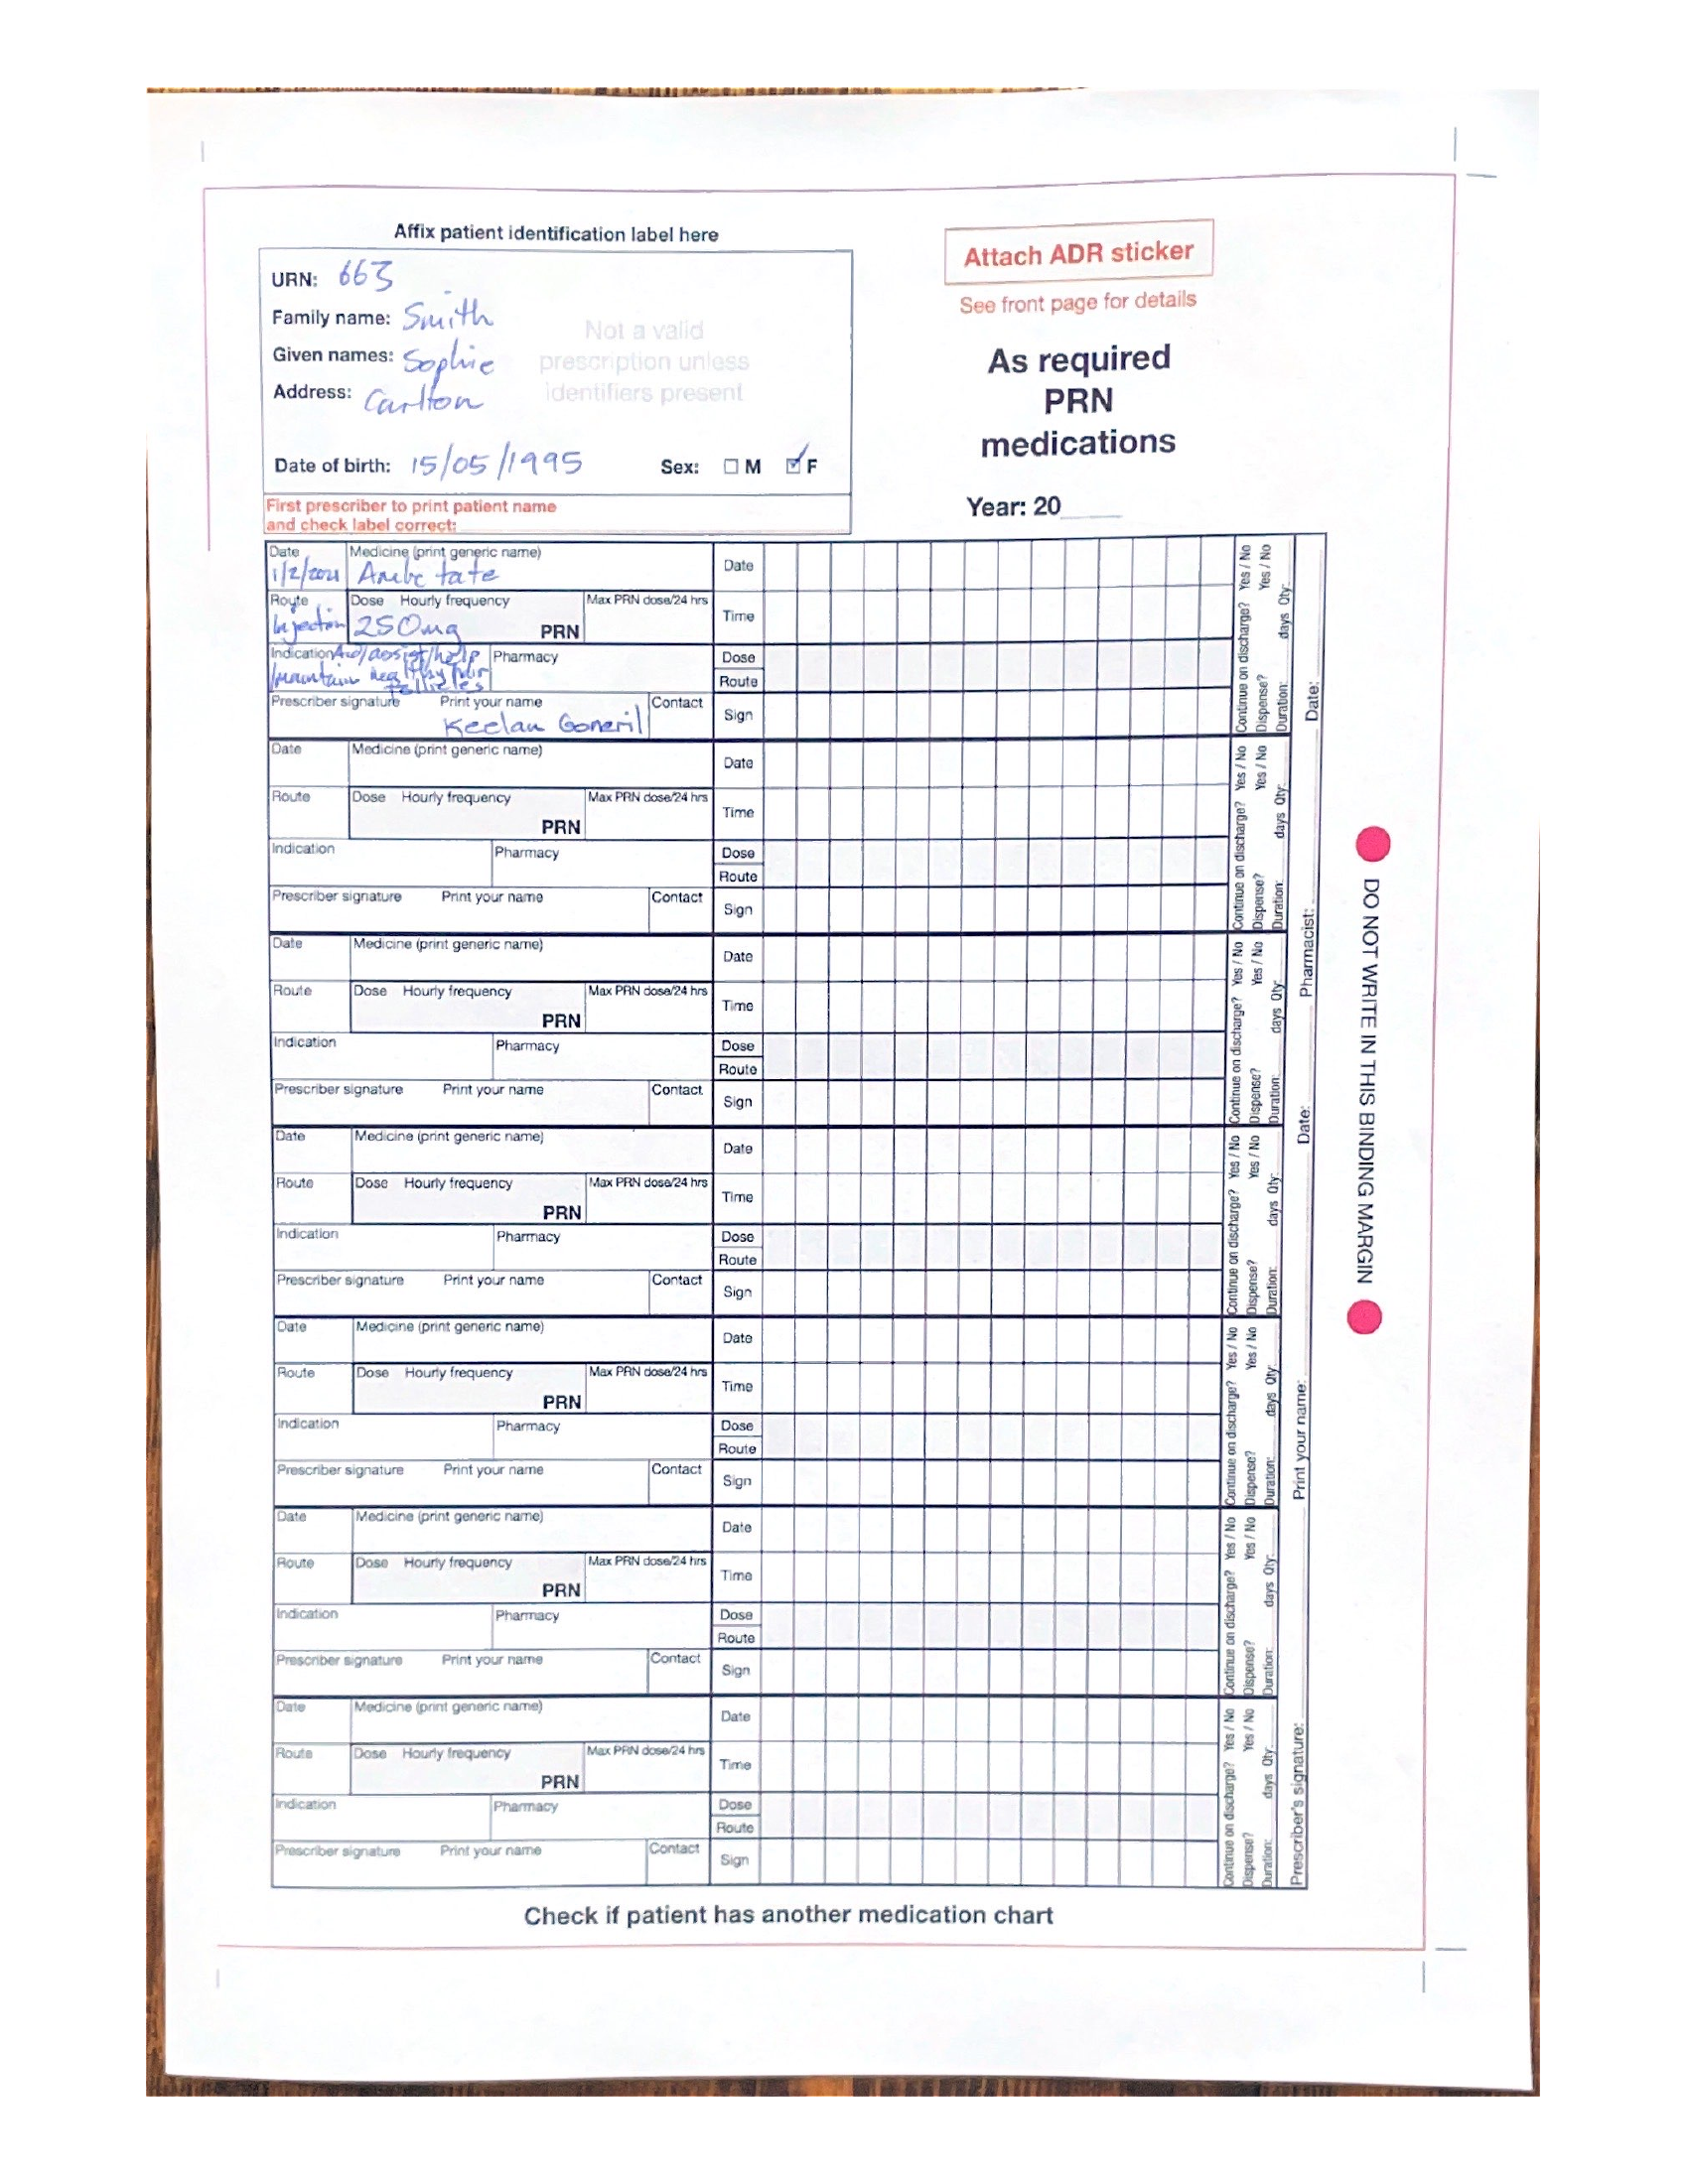 Affix patient identification label here
URN: 663
Family name: Smith
Given names: Sophie
Address: Carlton
Not a valid
prescription unless
identifiers present
Date of birth: 15/05/1995 Sex: M F
First prescriber to print patient name
and check label correct:
Attach ADR sticker
See front page for details
As required
PRN
medications
Year: 20
Date Medicine (print generic name) Date
1/2/2021
Route Dose Hourly frequency Max PRN dose/24 hrs Time
Injection 250mg PRN
Indication assist/help Pharmacy Dose
maintain healthy hair Route
follicles
Prescriber signature Print your name Contact Sign
Keelan Goneril
Continue on discharge? Yes / No
Dispense? Yes / No
Duration: days Qty:
Date Medicine (print generic name) Date
Route Dose Hourly frequency Max PRN dose/24 hrs Time
PRN
Indication Pharmacy Dose
Route
Prescriber signature Print your name Contact Sign
Continue on discharge? Yes / No
Dispense? Yes / No
Duration: days Qty:
Date Medicine (print generic name) Date
Route Dose Hourly frequency Max PRN dose/24 hrs Time
PRN
Indication Pharmacy Dose
Route
Prescriber signature Print your name Contact Sign
Continue on discharge? Yes / No
Dispense? Yes / No
Duration: days Qty:
Date Medicine (print generic name) Date
Route Dose Hourly frequency Max PRN dose/24 hrs Time
PRN
Indication Pharmacy Dose
Route
Prescriber signature Print your name Contact Sign
Continue on discharge? Yes / No
Dispense? Yes / No
Duration: days Qty:
Date Medicine (print generic name) Date
Route Dose Hourly frequency Max PRN dose/24 hrs Time
PRN
Indication Pharmacy Dose
Route
Prescriber signature Print your name Contact Sign
Continue on discharge? Yes / No
Dispense? Yes / No
Duration: days Qty:
Date Medicine (print generic name) Date
Route Dose Hourly frequency Max PRN dose/24 hrs Time
PRN
Indication Pharmacy Dose
Route
Prescriber signature Print your name Contact Sign
Continue on discharge? Yes / No
Dispense? Yes / No
Duration: days Qty:
Date Medicine (print generic name) Date
Route Dose Hourly frequency Max PRN dose/24 hrs Time
PRN
Indication Pharmacy Dose
Route
Prescriber signature Print your name Contact Sign
Continue on discharge? Yes / No
Dispense? Yes / No
Duration: days Qty:
Prescriber's signature: Print your name: Date: Pharmacist: Date:
DO NOT WRITE IN THIS BINDING MARGIN
Check if patient has another medication chart